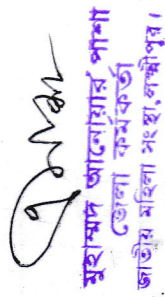 মুহাম্মদ আনোয়ার পাশা
জেলা কর্মকর্তা
জাতীয় মহিলা সংস্থা, লক্ষ্মীপুর।